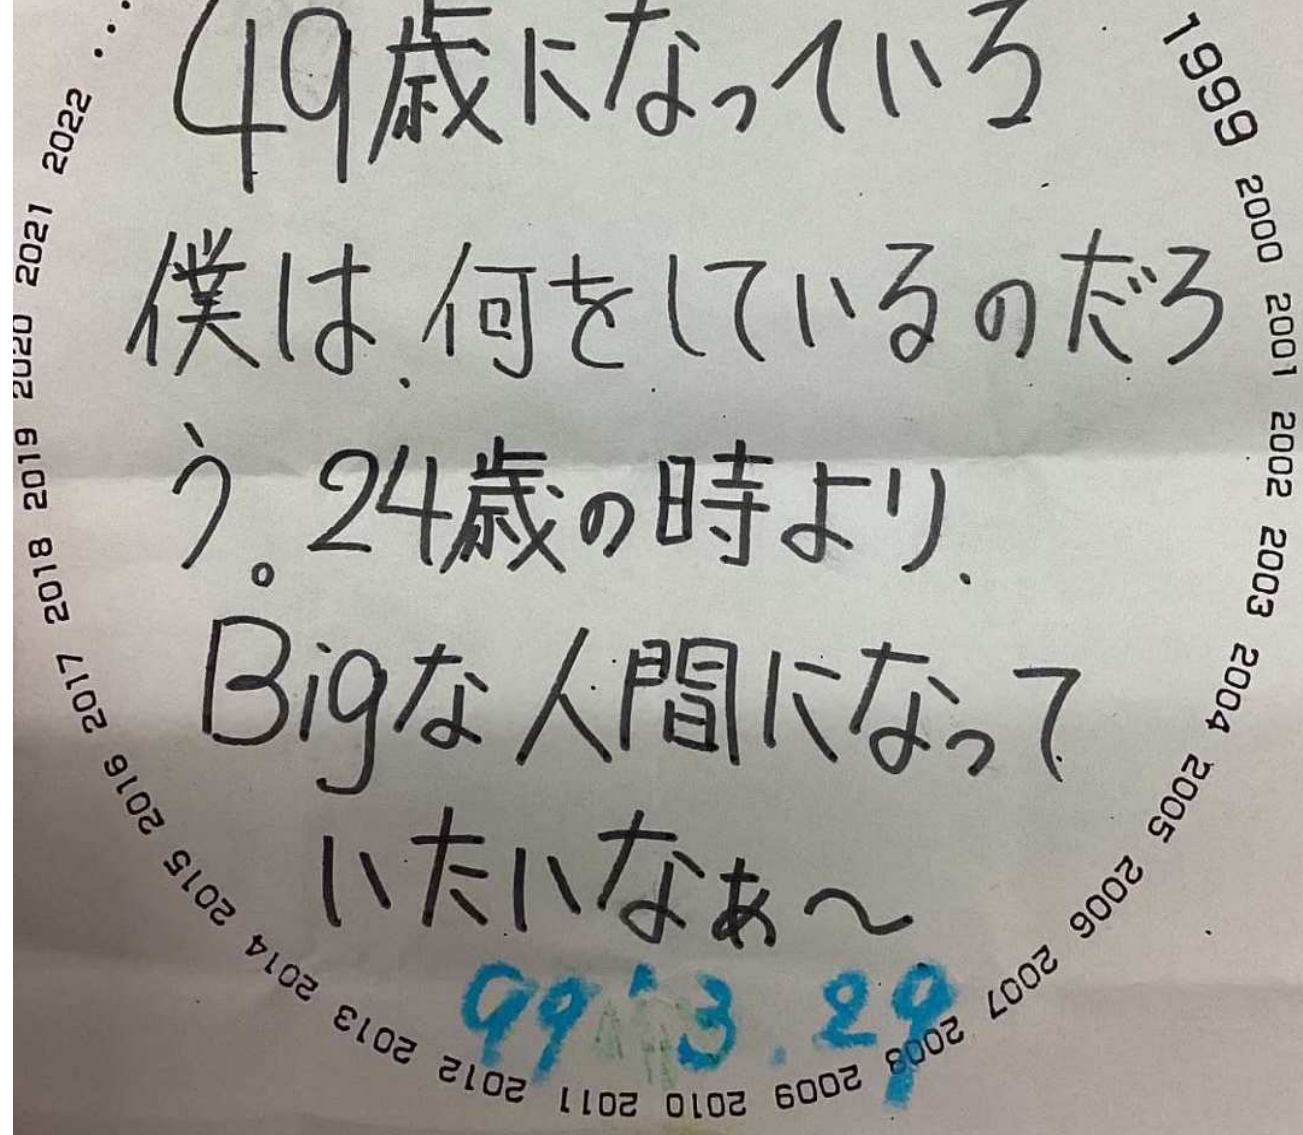 49歳になっている
僕は.何をしているのだろ
う。24歳の時より.
Bigな人間になって
いたいなぁ〜
99'3.29
1999 2000 2001 2002 2003 2004 2005 2006 2007 2008 2009 2010 2011 2012 2013 2014 2015 2016 2017 2018 2019 2020 2021 2022 ...